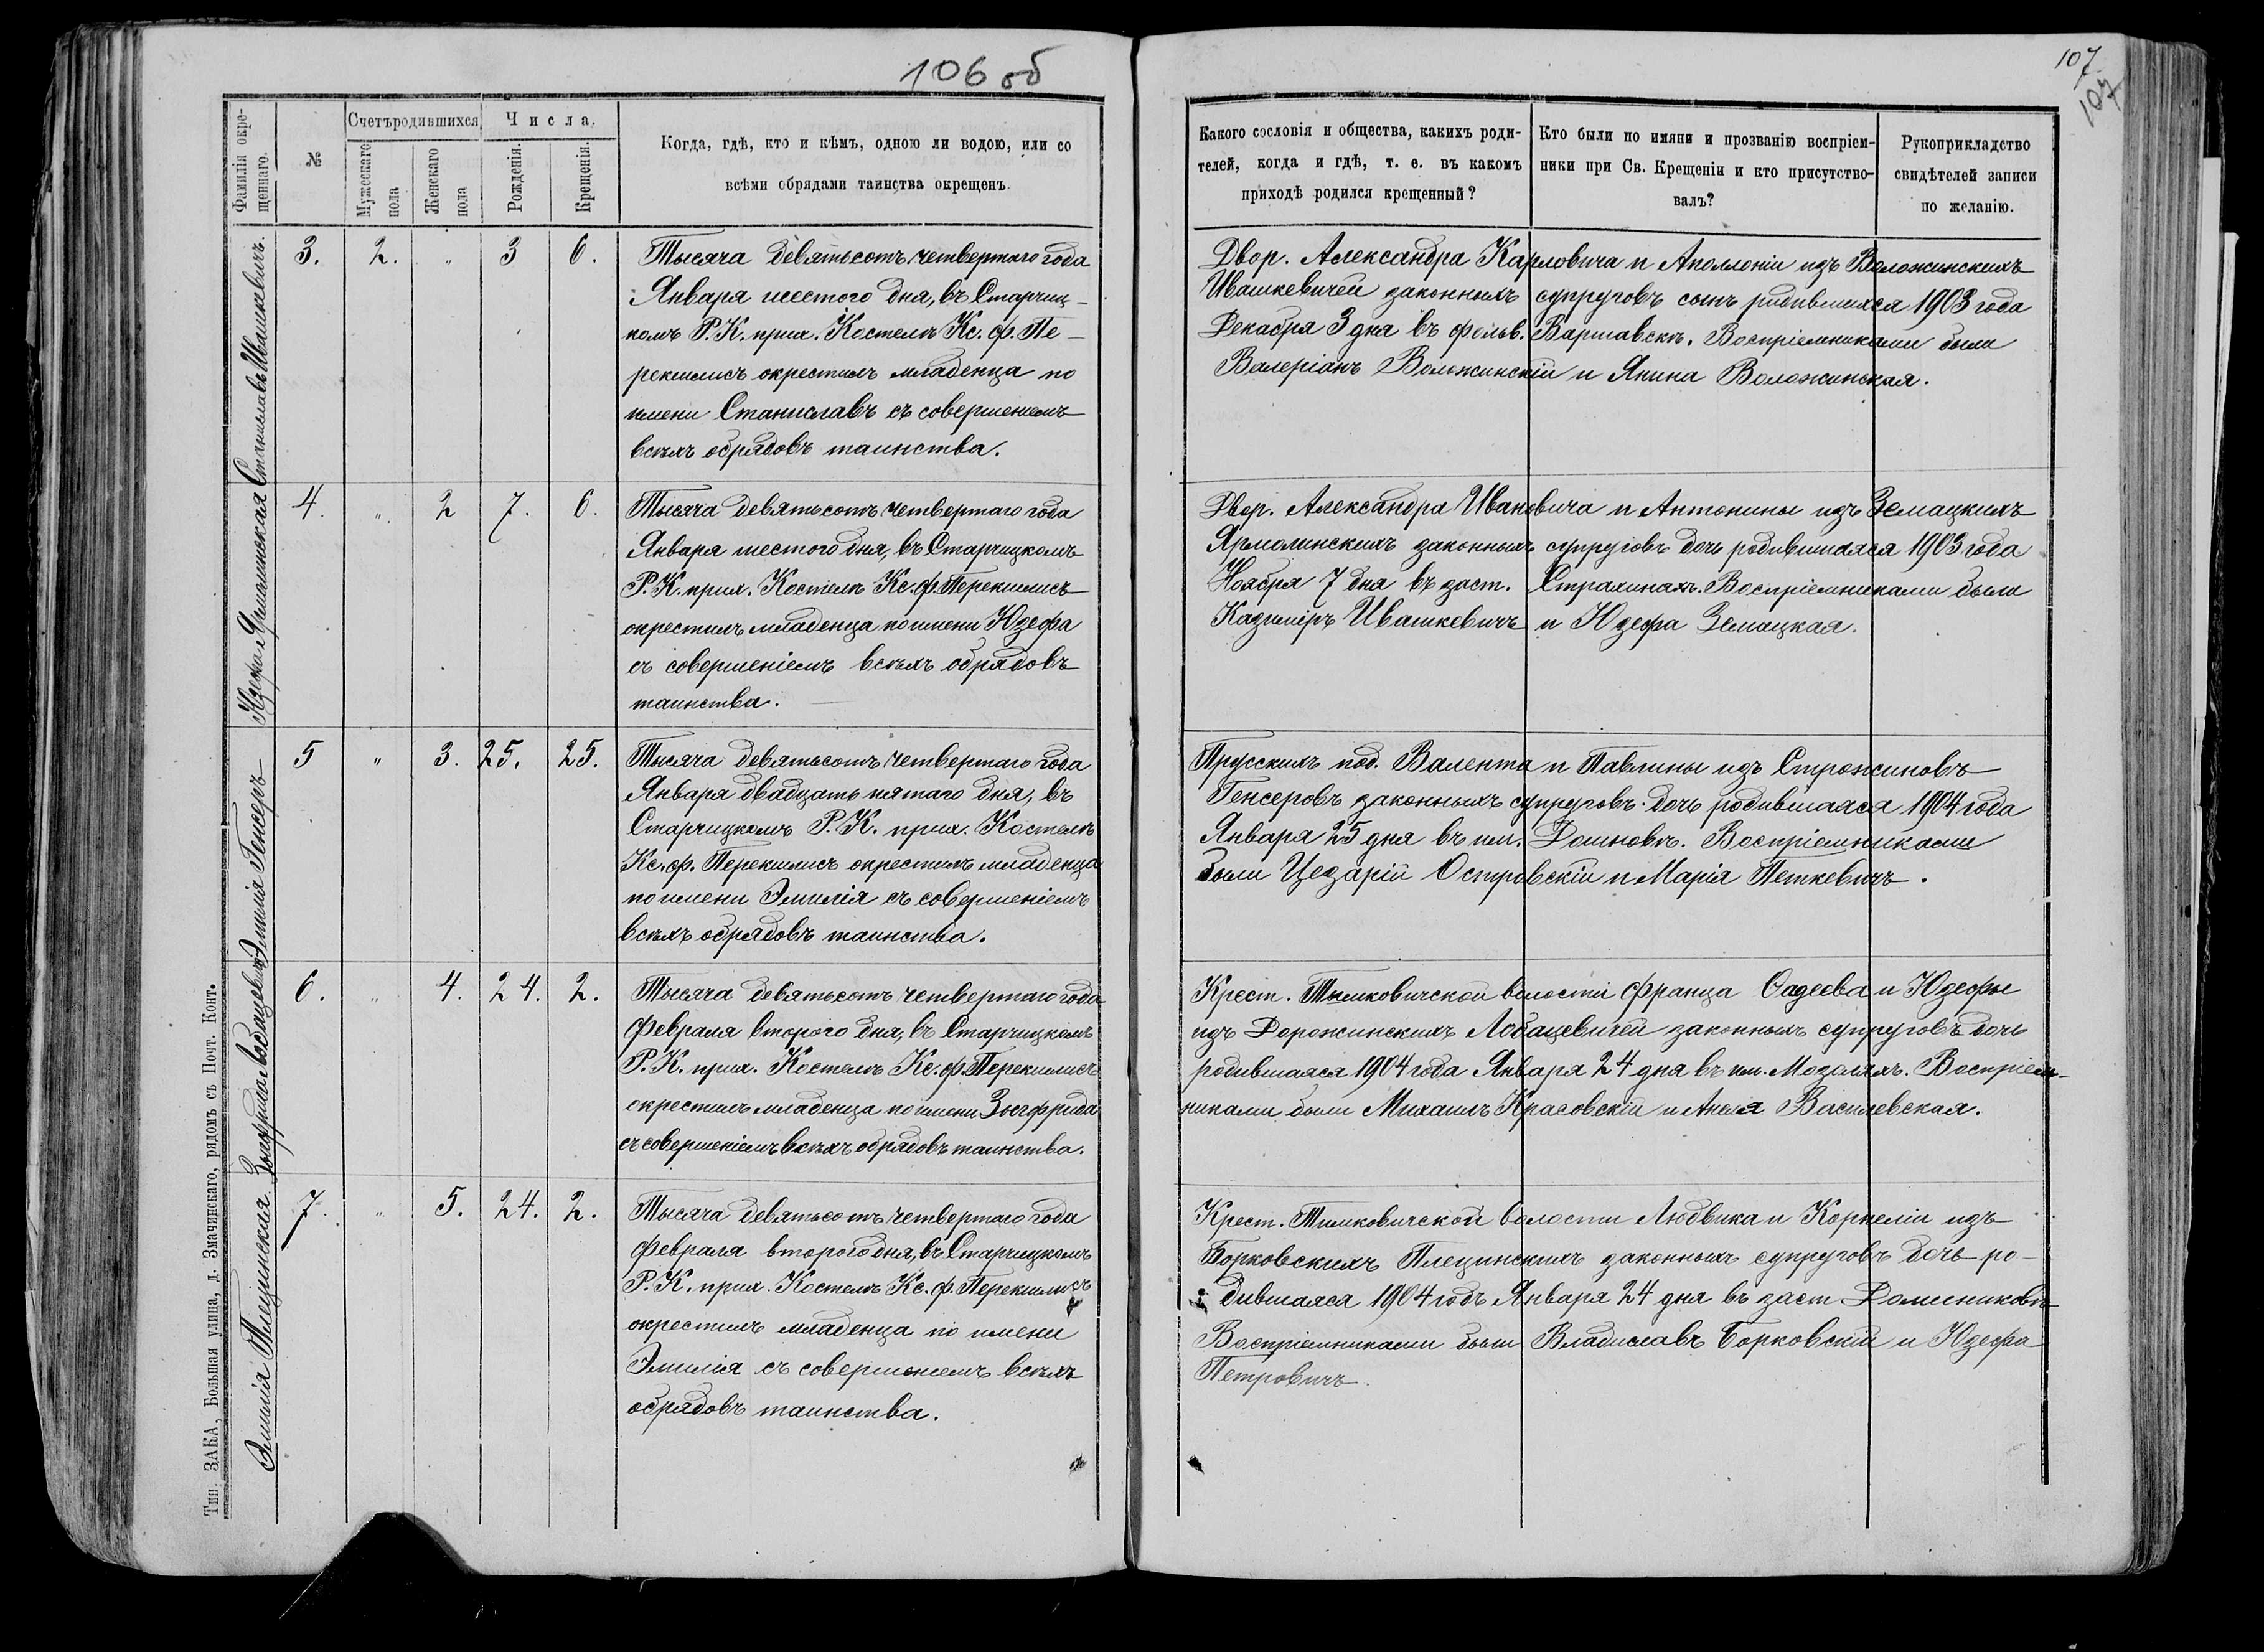 106 об
107
107
Фамилія окре-
щеннаго.
№
Счетъ родившихся
Мужескаго
пола
Женскаго
пола
Числа.
Рожденія.
Крещенія.
Когда, гдѣ, кто и кѣмъ, одною ли водою, или со
всѣми обрядами таинства окрещенъ.
Какого сословія и общества, какихъ роди-
телей, когда и гдѣ, т. е. въ какомъ
приходѣ родился крещенный?
Кто были по имяни и прозванію воспріем-
ники при Св. Крещеніи и кто присутство-
валъ?
Рукоприкладство
свидѣтелей записи
по желанію.
Станиславъ Ивашкевичъ.
3. 2. „ 3 6.
Тысяча девятьсотъ четвертаго года
Января шестого дня, въ Старчиц-
комъ Р. К. прих. Костелѣ Кс. ф. Пе-
рекшлисъ окрестилъ младенца по
имени Станиславъ съ совершеніемъ
всѣхъ обрядовъ таинства.
Двор. Александра Карловича и Аполлоніи изъ Воложинскихъ
Ивашкевичей законныхъ супруговъ сынъ родившійся 1903 года
Декабря 3 дня въ фольв. Варшавскѣ. Воспріемниками были
Валеріанъ Воложинскій и Янина Воложинская.
Юзефа Ярмолинская
4. „ 2 7. 6.
Тысяча девятьсотъ четвертаго года
Января шестого дня, въ Старчицкомъ
Р. К. прих. Костелѣ Кс. ф. Перекшлисъ
окрестилъ младенца по имени Юзефа
съ совершеніемъ всѣхъ обрядовъ
таинства.
Двор. Александра Ивановича и Антонины изъ Земацкихъ
Ярмолинскихъ законныхъ супруговъ дочь родившаяся 1903 года
Ноября 7 дня въ заст. Страхинахъ. Воспріемниками были
Казиміръ Ивашкевичъ и Юзефа Земацкая.
Эмилія Генсеръ
5 „ 3. 25. 25.
Тысяча девятьсотъ четвертаго года
Января двадцать пятаго дня, въ
Старчицкомъ Р. К. прих. Костелѣ
Кс. ф. Перекшлисъ окрестилъ младенца
по имени Эмилія съ совершеніемъ
всѣхъ обрядовъ таинства.
Прусскихъ под. Валента и Павлины изъ Строжиновъ
Генсеровъ законныхъ супруговъ дочь родившаяся 1904 года
Января 25 дня въ им. Домновѣ. Воспріемниками
были Цезарій Островскій и Марія Петкевичъ.
Зыгфрида Лобацевичъ
6. „ 4. 24. 2.
Тысяча девятьсотъ четвертаго года
Февраля второго дня, въ Старчицкомъ
Р. К. прих. Костелѣ Кс. ф. Перекшлисъ
окрестилъ младенца по имени Зыгфрида
съ совершеніемъ всѣхъ обрядовъ таинства.
Крест. Тымковичской волости Франца Фадеева и Юзефы
изъ Дорожинскихъ Лобацевичей законныхъ супруговъ дочь
родившаяся 1904 года Января 24 дня въ им. Мозоляхъ. Воспріем-
никами были Михаилъ Красовскій и Анеля Василевская.
Эмилія Плещинская
7. „ 5. 24. 2.
Тысяча девятьсотъ четвертаго года
Февраля второго дня, въ Старчицкомъ
Р. К. прих. Костелѣ Кс. ф. Перекшлисъ
окрестилъ младенца по имени
Эмилія съ совершеніемъ всѣхъ
обрядовъ таинства.
Крест. Тимковичской волости Людвика и Корнеліи изъ
Борковскихъ Плещинскихъ законныхъ супруговъ дочь ро-
дившаяся 1904 годъ Января 24 дня въ заст. Домениковѣ
Воспріемниками были Владиславъ Борковскій и Юзефа
Петровичъ.
Тип. ЗАКА, Большая улица, д. Змачинскаго, рядомъ съ Почт. Конт.